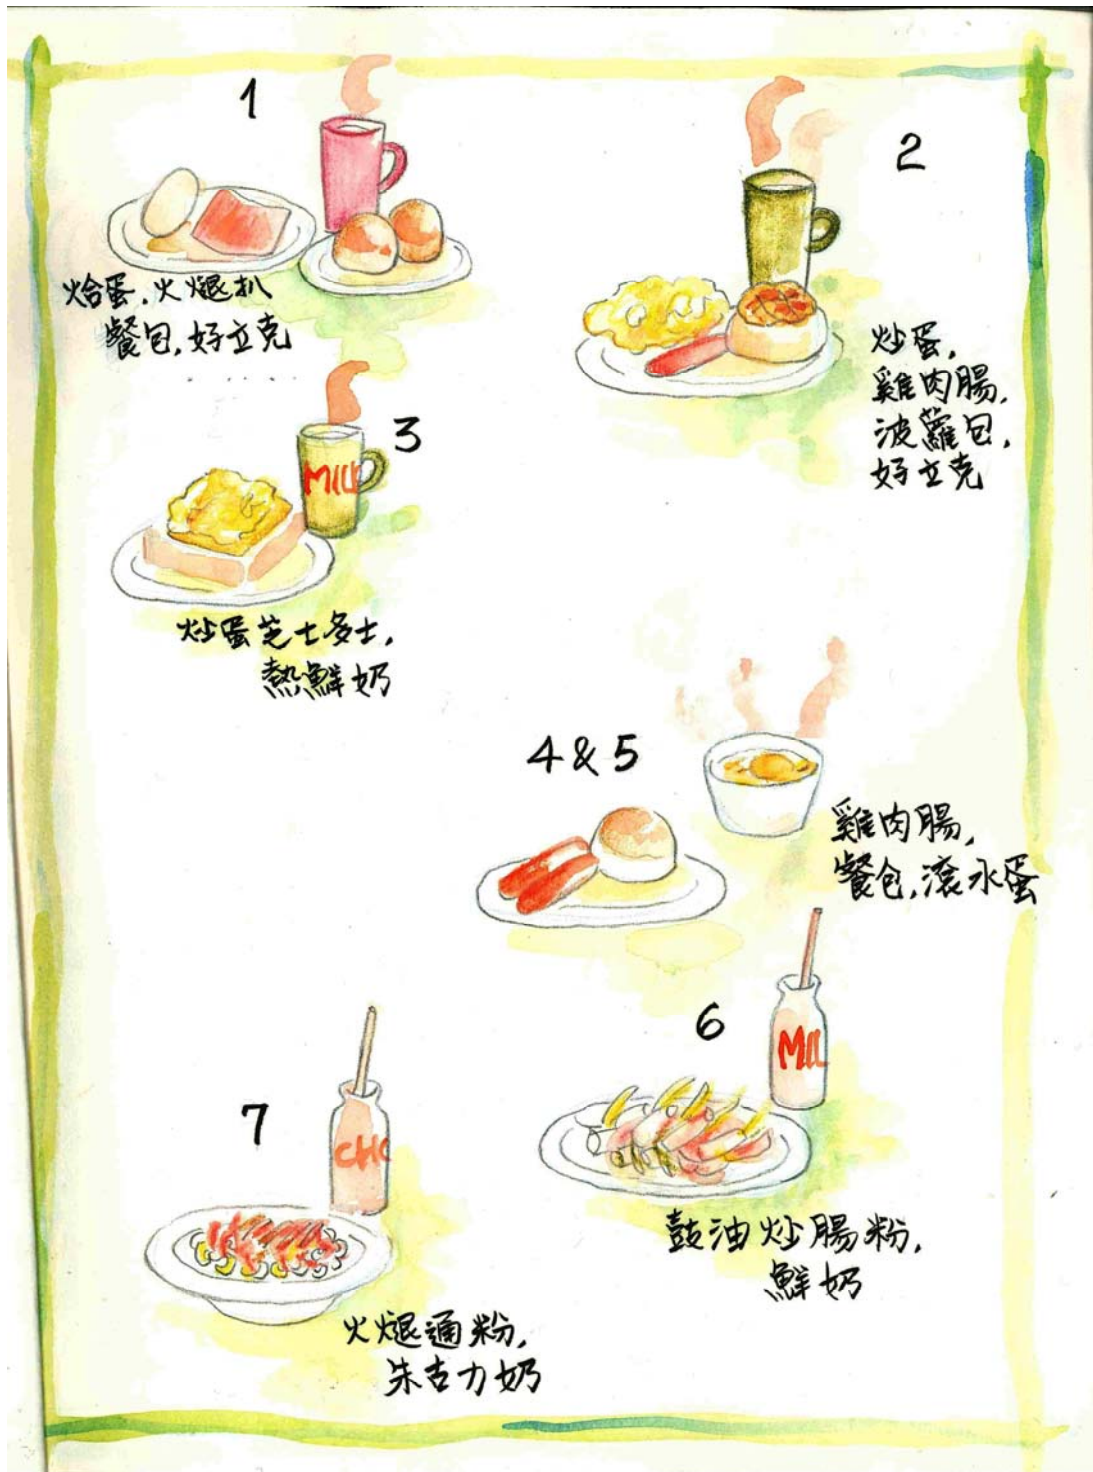 1
烚蛋,火腿扒
餐包,好立克
2
炒蛋,
雞肉腸,
波蘿包,
好立克
3
MILK
炒蛋芝士多士,
熱鮮奶
4 & 5
雞肉腸,
餐包,滾水蛋
6
MIL
鼓油炒腸粉,
鮮奶
7
CHO
火腿通粉,
朱古力奶